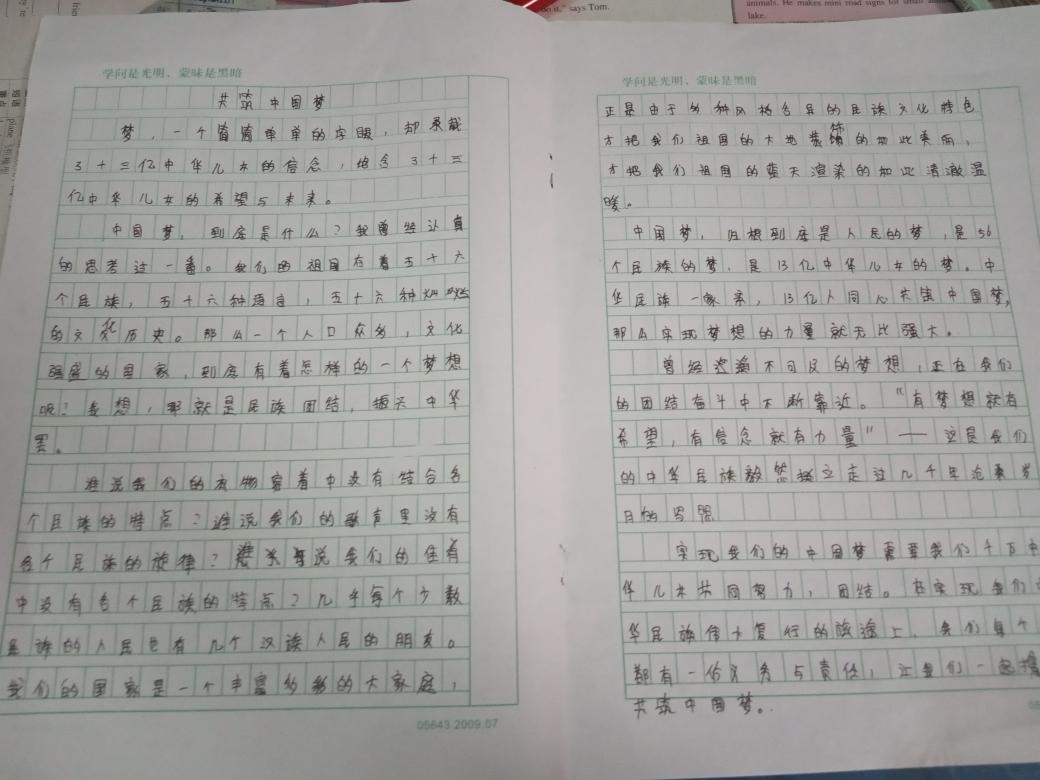 animals. He makes mini road signs for small
lake.
do it," says Tom.
学问是光明，蒙昧是黑暗
共筑中国梦
梦，一个简简单单的字眼，却承载
3十三亿中华儿女的信念，饱含3十三
亿中华儿女的希望与未来。
中国梦，到底是什么？我曾经认真
的思考过一番。我们的祖国有着五十六
个民族，五十六种语言，五十六种
的文化历史。那么一个人口众多，文化
强盛的国家，到底有着怎样的一个梦想
呢？我想，那就是民族团结，振兴中华
罢。
谁说我们的衣物穿着中没有结合各
个民族的特点？谁说我们的歌声里没有
各个民族的旋律？谁说我们的住宿
中没有各个民族的特点？几乎每个少数
民族的人民已有几个汉族人民的朋友。
我们的国家是一个丰富多彩的大家庭，
05643.2009.07
学问是光明，蒙昧是黑暗
正是由于多种风格各异的民族文化特色
才把我们祖国的大地装饰的如此美丽，
才把我们祖国的蓝天渲染的如此清澈温
暖。
中国梦，归根到底是人民的梦，是56
个民族的梦，是13亿中华儿女的梦。中
华民族一家亲，13亿人同心共筑中国梦，
那么实现梦想的力量就无比强大。
曾经遥不可及的梦想，正在我们
的团结奋斗中不断靠近。“有梦想就有
希望，有信念就有力量”——这是我们
的中华民族毅然挺立走过几千年沧桑岁
月的写照
实现我们的中国梦需要我们千万中
华儿女共同努力，团结。在实现我们中
华民族伟大复兴的旅途上，我们每个
都有一份义务与责任，让我们一起携
共筑中国梦。